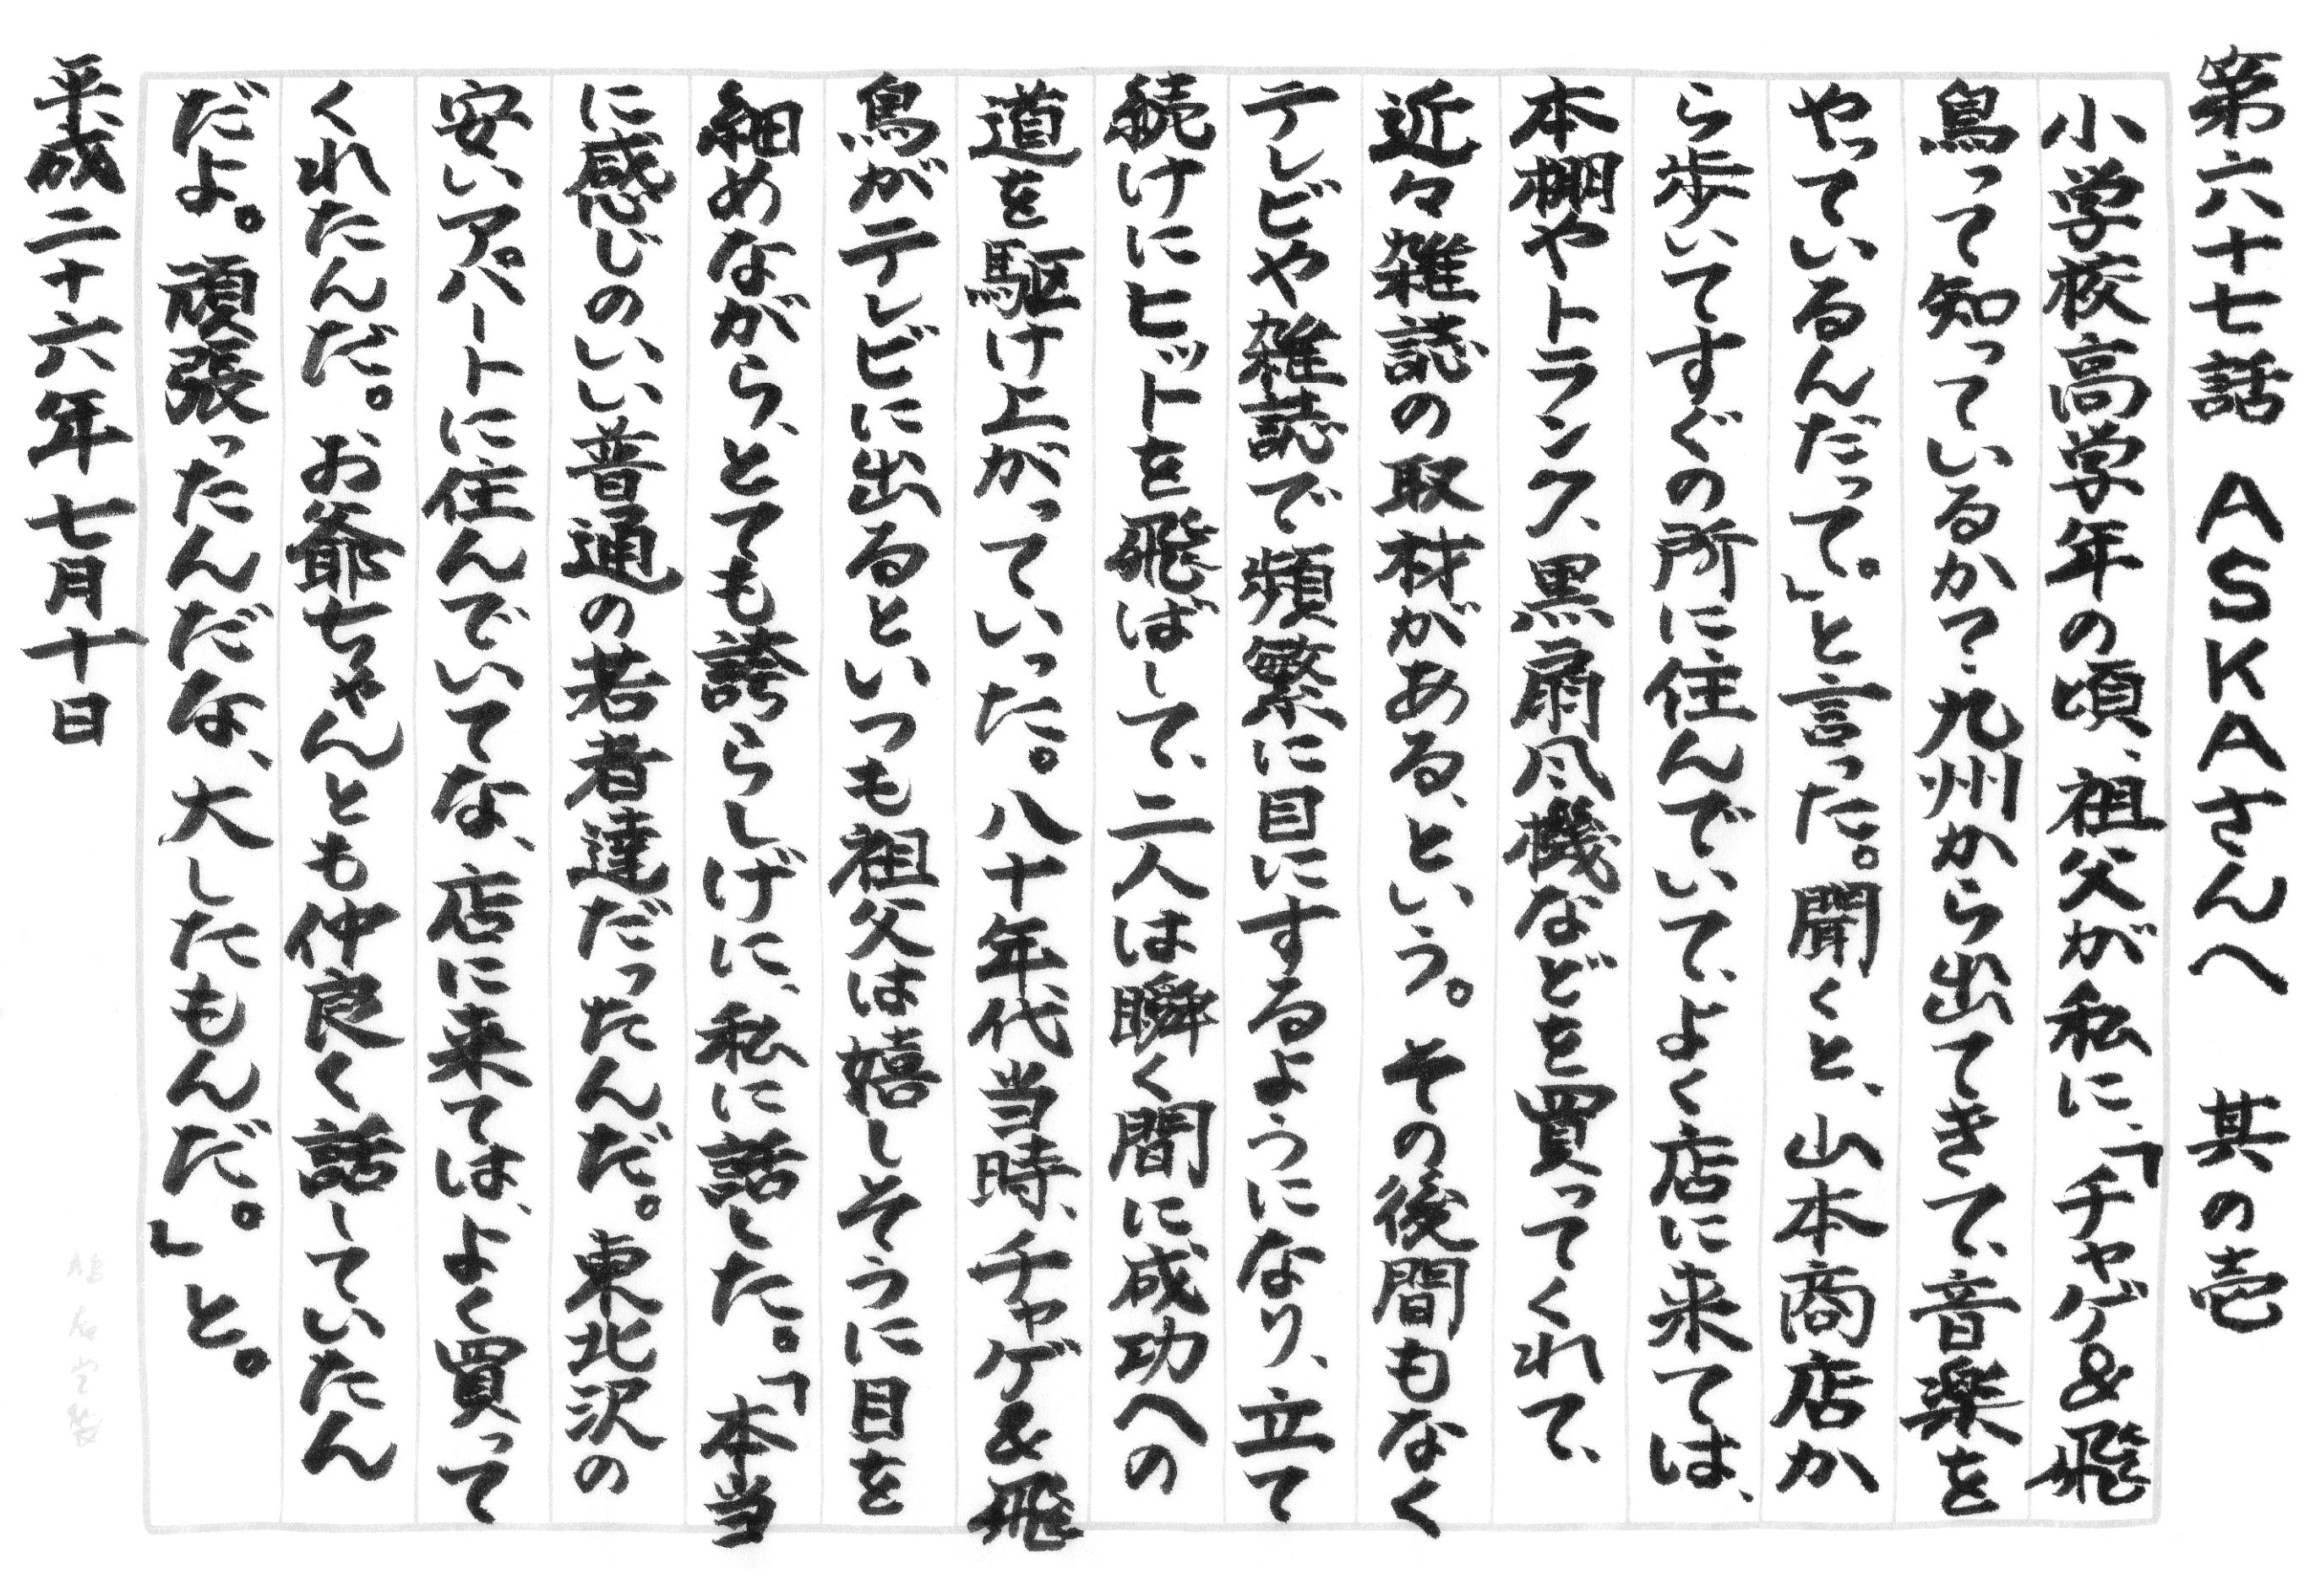 第六十七話 ASKAさんへ 其の壱
小学校高学年の頃、祖父が私に、「チャゲ&飛
鳥って知っているかて、九州から出てきて、音楽を
やっているんだって。」と言った。聞くと、山本商店か
ら歩いてすぐの所に住んでいて、よく店に来ては、
本棚やトランク、黒扇風機などを買ってくれて、
近々雑誌の取材がある、という。その後間もなく
テレビや雑誌で頻繁に目にするようになり、立て
続けにヒットを飛ばして、二人は瞬く間に成功への
道を駆け上がっていった。八十年代当時、チャゲ&飛
鳥がテレビに出るといつも祖父は嬉しそうに目を
細めながら、とても誇らしげに、私に話した。「本当
に感じのいい普通の若者達だったんだ。東北沢の
安いアパートに住んでいてな、店に来ては、よく買って
くれたんだ。お爺ちゃんとも仲良く話していたん
だよ。頑張ったんだな、大したもんだ。」と。
平成二十六年七月十日